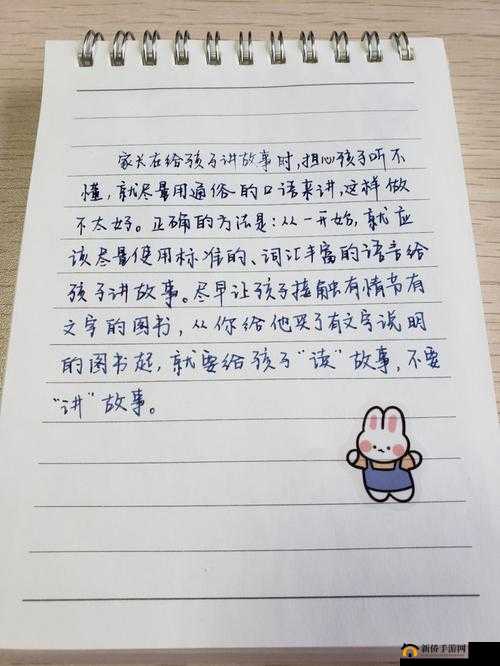 家长在给孩子讲故事时，担心孩子听不
懂，就尽量用通俗的口语来讲，这样做
不太好。正确的方法是：从一开始，就应
该尽量使用标准的、词汇丰富的语言给
孩子讲故事。尽早让孩子接触有情节有
文字的图书，从你给他买了有文字说明
的图书起，就要给孩子“读”故事，不要
“讲”故事。
新侨手游网